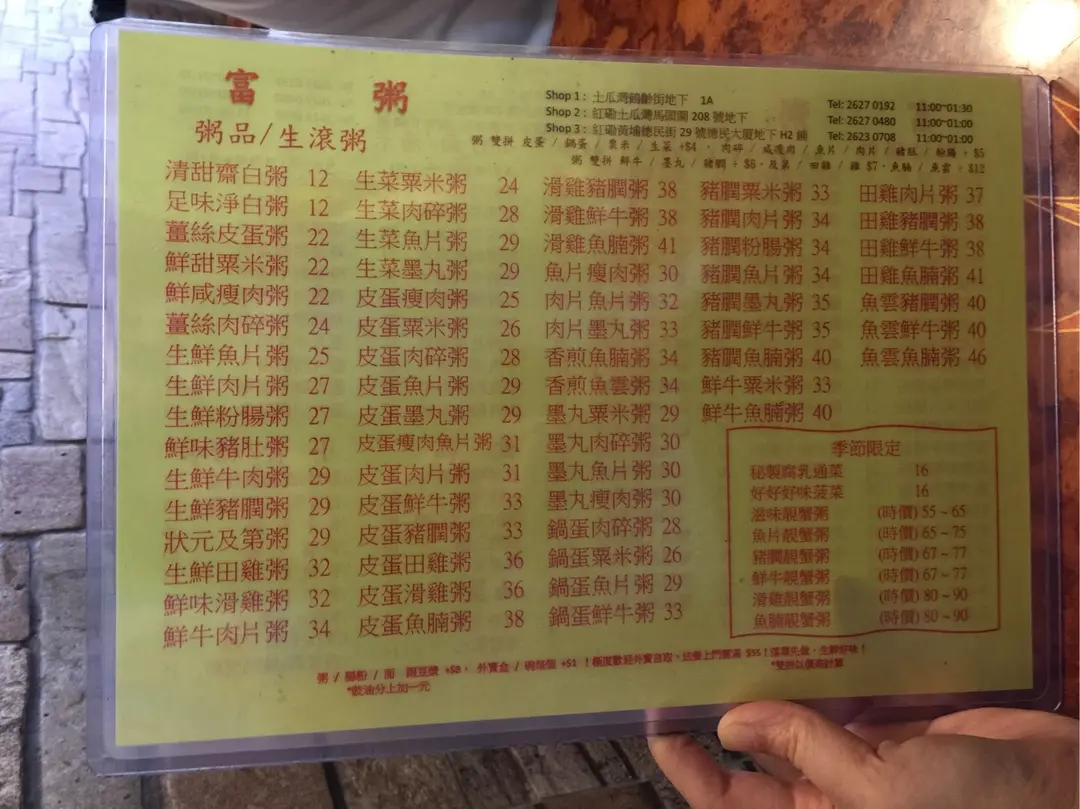 富 粥
粥品/生滾粥
Shop 1 : 土瓜灣鶴齡街地下 1A Tel: 2627 0192 11:00~01:30
Shop 2 : 紅磡土瓜灣馬圍圍 208 號地下 Tel: 2627 0480 11:00~01:00
Shop 3 : 紅磡黃埔德民街 29 號德民大廈地下 H2 鋪 Tel: 2623 0708 11:00~01:00
粥 雙拼 皮蛋 / 鍋蛋 / 粟米 / 生菜 +$4 . 肉碎 / 咸瘦肉 / 魚片 / 肉片 / 豬肚 / 粉腸 + $5
粥 雙拼 鮮牛 / 墨丸 / 豬膶 + $6 . 及第 / 田雞 / 雞 $7 . 魚腩 / 魚雲 + $12
清甜齋白粥 12
足味淨白粥 12
薑絲皮蛋粥 22
鮮甜粟米粥 22
鮮咸瘦肉粥 22
薑絲肉碎粥 24
生鮮魚片粥 25
生鮮肉片粥 27
生鮮粉腸粥 27
鮮味豬肚粥 27
生鮮牛肉粥 29
生鮮豬膶粥 29
狀元及第粥 29
生鮮田雞粥 32
鮮味滑雞粥 32
鮮牛肉片粥 34
生菜粟米粥 24
生菜肉碎粥 28
生菜魚片粥 29
生菜墨丸粥 29
皮蛋瘦肉粥 25
皮蛋粟米粥 26
皮蛋肉碎粥 28
皮蛋魚片粥 29
皮蛋墨丸粥 29
皮蛋瘦肉魚片粥 31
皮蛋肉片粥 31
皮蛋鮮牛粥 33
皮蛋豬膶粥 33
皮蛋田雞粥 36
皮蛋滑雞粥 36
皮蛋魚腩粥 38
滑雞豬膶粥 38
滑雞鮮牛粥 38
滑雞魚腩粥 41
魚片瘦肉粥 30
肉片魚片粥 32
肉片墨丸粥 33
香煎魚腩粥 34
香煎魚雲粥 34
墨丸粟米粥 29
墨丸肉碎粥 30
墨丸魚片粥 30
墨丸瘦肉粥 30
鍋蛋肉碎粥 28
鍋蛋粟米粥 26
鍋蛋魚片粥 29
鍋蛋鮮牛粥 33
豬膶粟米粥 33
豬膶肉片粥 34
豬膶粉腸粥 34
豬膶魚片粥 34
豬膶墨丸粥 35
豬膶鮮牛粥 35
豬膶魚腩粥 40
鮮牛粟米粥 33
鮮牛魚腩粥 40
田雞肉片粥 37
田雞豬膶粥 38
田雞鮮牛粥 38
田雞魚腩粥 41
魚雲豬膶粥 40
魚雲鮮牛粥 40
魚雲魚腩粥 46
季節限定
秘製腐乳通菜 16
好好好味菠菜 16
滋味靚蟹粥 (時價) 55 ~ 65
魚片靚蟹粥 (時價) 65 ~ 75
豬膶靚蟹粥 (時價) 67 ~ 77
鮮牛靚蟹粥 (時價) 67 ~ 77
滑雞靚蟹粥 (時價) 80 ~ 90
魚腩靚蟹粥 (時價) 80 ~ 90
粥 / 腸粉 / 面 跟豆漿 +$8. 外賣盒 / 碗每個 +$1 ! 極度歡迎外賣自取、送餐上門需滿 $55! 落單先做，生鮮好味!
*豉油分上加一元 *雙拼以價高計算